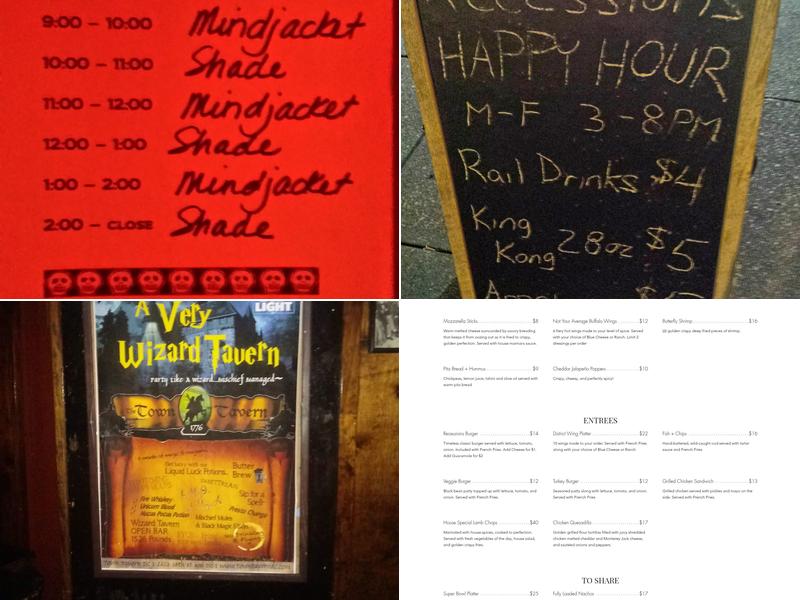 9:00 – 10:00 Mindjacket
10:00 – 11:00 Shade
11:00 – 12:00 Mindjacket
12:00 – 1:00 Shade
1:00 – 2:00 Mindjacket
2:00 – CLOSE Shade
HAPPY HOUR
M-F 3-8PM
Rail Drinks $4
King
Kong 28oz $5
LIGHT
A Very
Wizard Tavern
party like a wizard...mischief managed~
The Town Tavern
1776
Get lucky with our
Liquid Luck Potions..
Butter
Brew
Fire Whiskey
Unicorn Blood
Hocus Pocus Potion
Sip for a
Spell
Mischief Mules
& Black Magic
Wizard Tavern
OPEN BAR
Mozzarella Sticks $8
Warm melted cheese surrounded by savory breading
that keeps it from oozing out as it is fried to crispy,
golden perfection. Served with house marinara sauce.
Not Your Average Buffalo Wings $12
A fiery hot wings made to your level of spice. Served
with your choice of Blue Cheese or Ranch. Limit 2
dressings per order
Butterfly Shrimp $16
20 golden crispy deep fried pieces of shrimp.
Pita Bread + Hummus $9
Chickpeas, lemon juice, tahini and olive oil served with
warm pita bread
Cheddar Jalapeño Poppers $10
Crispy, cheesy, and perfectly spicy!
ENTREES
Recessions Burger $14
Timeless classic burger served with lettuce, tomato,
onion. Included with French Fries. Add Cheese for $1.
Add Guacamole for $2
District Wing Platter $22
10 wings made to your order. Served with French Fries
along with your choice of Blue Cheese or Ranch
Fish + Chips $16
Hand-battered, wild-caught cod served with tartar
sauce and French Fries
Veggie Burger $12
Black bean patty topped up with lettuce, tomato, and
onion. Served with French Fries.
Turkey Burger $12
Seasoned patty along with lettuce, tomato, and onion.
Served with French Fries
Grilled Chicken Sandwich $13
Grilled chicken served with pickles and mayo on the
side. Served with French Fries.
House Special Lamb Chops $40
Marinated with house spices, cooked to perfection.
Served with fresh vegetables of the day, house salad,
and golden crispy fries.
Chicken Quesadilla $17
Golden grilled flour tortillas filled with juicy shredded
chicken melted cheddar and Monterey Jack cheese,
and sautéed onions and peppers.
TO SHARE
Super Bowl Platter $25
Fully Loaded Nachos $17